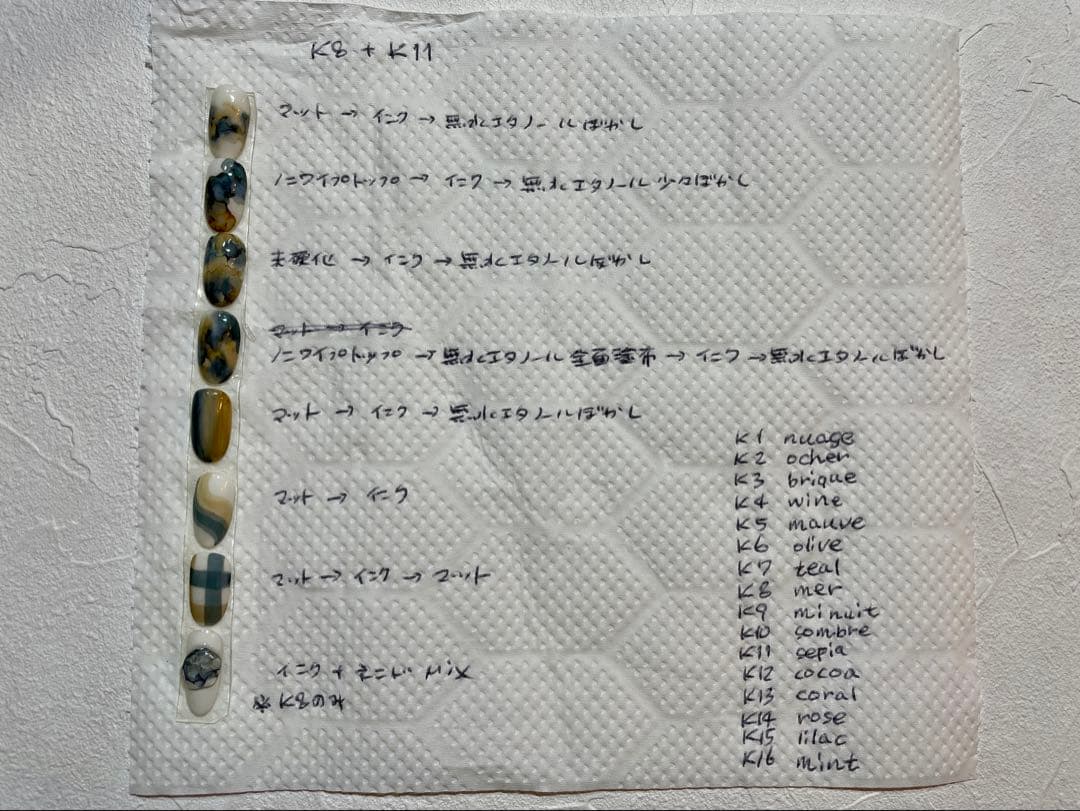 K8 + K11
マット → インク → 無水エタノールぼかし
ノンワイプトップ → インク → 無水エタノール少々ぼかし
未硬化 → インク → 無水エタノールぼかし
マット → インク
ノンワイプトップ → 無水エタノール全面塗布 → インク → 無水エタノールぼかし
マット → インク → 無水エタノールぼかし
マット → インク
マット → インク → マット
インク +
※ K8のみ
K1 nuage
K2 ocher
K3 brique
K4 wine
K5 mauve
K6 olive
K7 teal
K8 mer
K9 minuit
K10 sombre
K11 sepia
K12 cocoa
K13 coral
K14 rose
K15 lilac
K16 mint